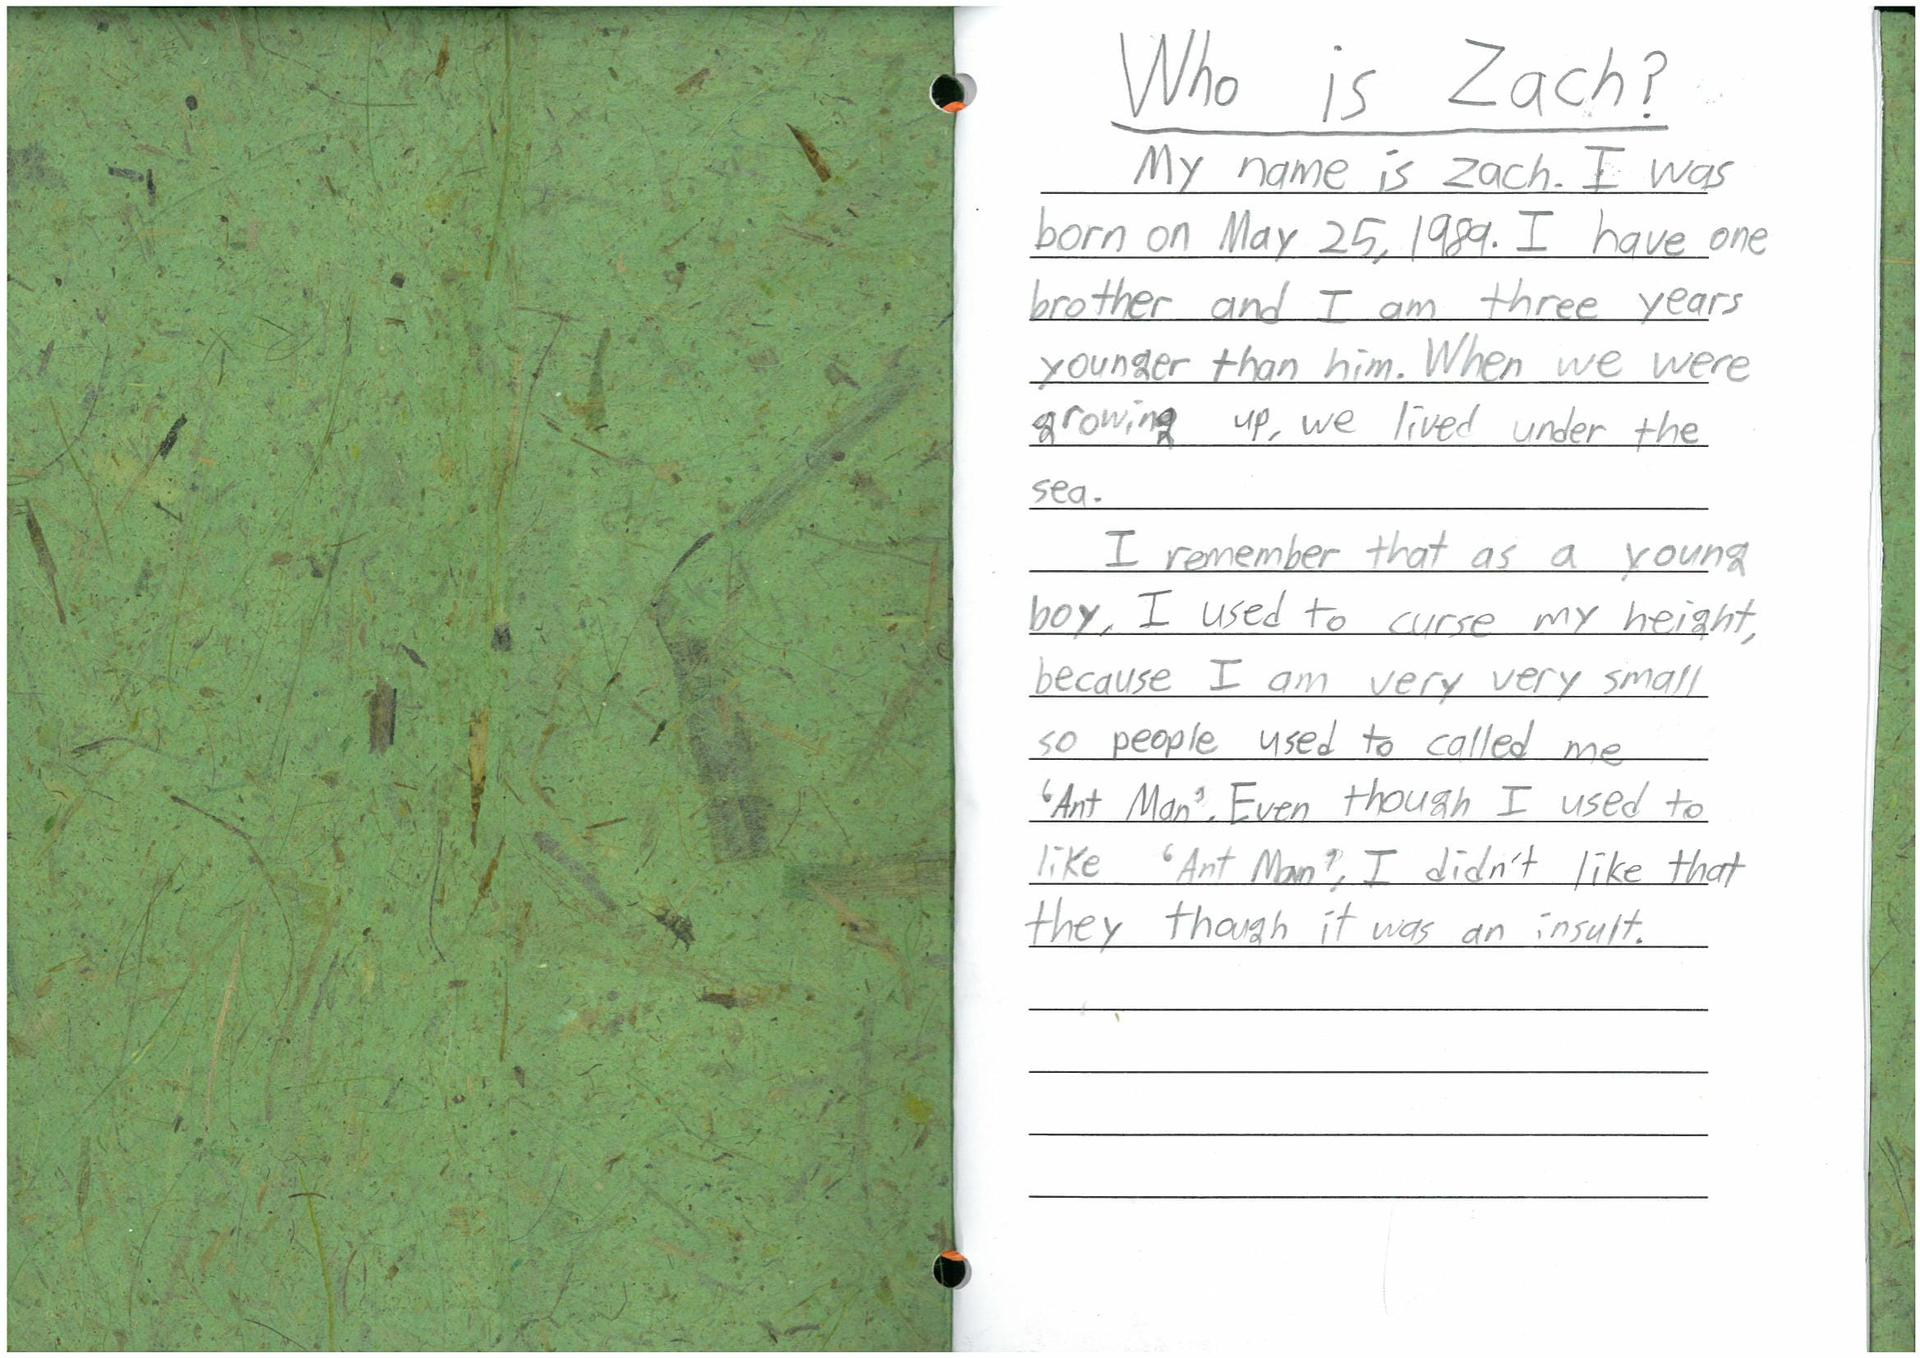 Who is Zach?
My name is Zach. I was
born on May 25, 1989. I have one
brother and I am three years
younger than him. When we were
growing up, we lived under the
sea.
I remember that as a young
boy, I used to curse my height,
because I am very very small
so people used to called me
‘Ant Man’. Even though I used to
like ‘Ant Man’, I didn't like that
they though it was an insult.